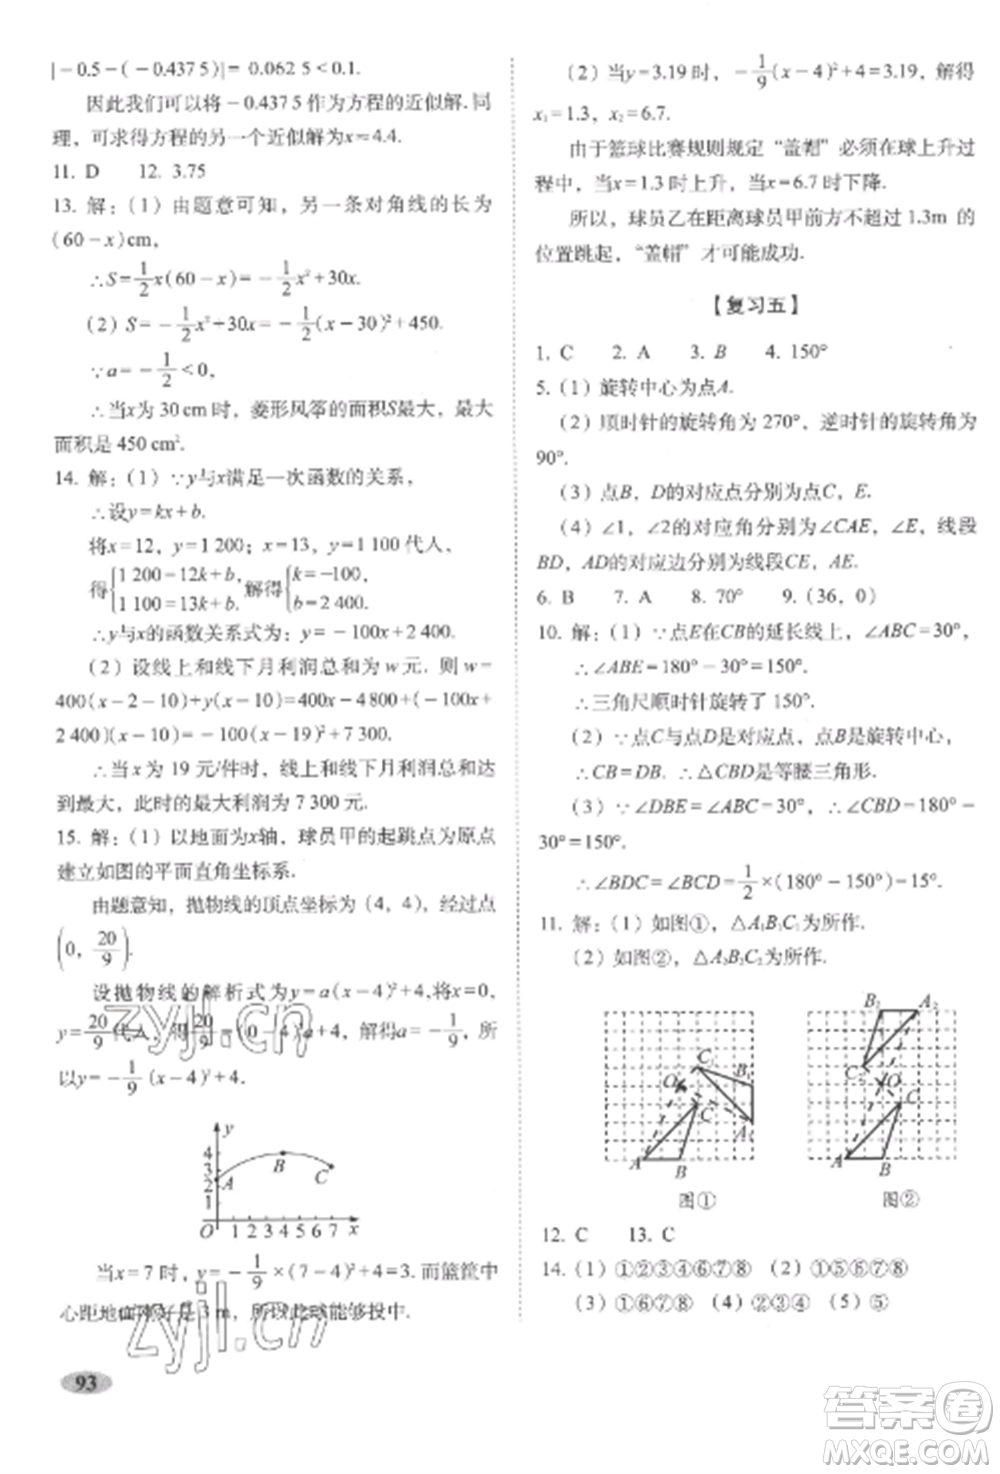 |－0.5－(－0.437 5)|＝0.062 5＜0.1.
因此我们可以将－0.437 5作为方程的近似解.同
理，可求得方程的另一个近似解为x＝4.4.
11. D　12. 3.75
13. 解：（1）由题意可知，另一条对角线的长为
(60－x)cm,
∴S＝1/2x(60－x)＝－1/2x²＋30x.
（2）S＝－1/2x²＋30x＝－1/2(x－30)²＋450.
∵a＝－1/2＜0,
∴当x为30 cm时，菱形风筝的面积S最大，最大
面积是450 cm².
14. 解：（1）∵y与x满足一次函数的关系，
∴设y＝kx＋b.
将x＝12，y＝1 200；x＝13，y＝1 100代人，
得{1 200＝12k＋b, 1 100＝13k＋b. 解得{k＝－100, b＝2 400.
∴y与x的函数关系式为：y＝－100x＋2 400.
（2）设线上和线下月利润总和为w元. 则w＝
400(x－2－10)＋y(x－10)＝400x－4 800＋(－100x＋
2 400)(x－10)＝－100(x－19)²＋7 300.
∴当x为19元/件时，线上和线下月利润总和达
到最大，此时的最大利润为7 300元.
15. 解：（1）以地面为x轴，球员甲的起跳点为原点
建立如图的平面直角坐标系.
由题意知，抛物线的顶点坐标为（4，4），经过点
(0, 20/9).
设抛物线的解析式为y＝a(x－4)²＋4,将x＝0,
y＝20/9代人，得20/9＝(0－4)²a＋4，解得a＝－1/9，所
以y＝－1/9(x－4)²＋4.
y
4
3
2
A
B
C
O 1 2 3 4 5 6 7 x
当x＝7时，y＝－1/9×(7－4)²＋4＝3. 而篮筐中
心距地面刚好是3 m，所以此球能够投中.
93
（2）当y＝3.19时，－1/9(x－4)²＋4＝3.19，解得
x₁＝1.3，x₂＝6.7.
由于篮球比赛规则规定“盖帽”必须在球上升过
程中，当x＝1.3时上升，当x＝6.7时下降.
所以，球员乙在距离球员甲前方不超过1.3m的
位置跳起，“盖帽”才可能成功.
【复习五】
1. C　2. A　3. B　4. 150°
5.（1）旋转中心为点A.
（2）顺时针的旋转角为270°，逆时针的旋转角为
90°.
（3）点B，D的对应点分别为点C，E.
（4）∠1，∠2的对应角分别为∠CAE，∠E，线段
BD，AD的对应边分别为线段CE，AE.
6. B　7. A　8. 70°　9.（36，0）
10. 解：（1）∵点E在CB的延长线上，∠ABC＝30°，
∴∠ABE＝180°－30°＝150°.
∴三角尺顺时针旋转了150°.
（2）∵点C与点D是对应点，点B是旋转中心，
∴CB＝DB. ∴△CBD是等腰三角形.
（3）∵∠DBE＝∠ABC＝30°，∴∠CBD＝180°－
30°＝150°.
∴∠BDC＝∠BCD＝1/2×(180°－150°)＝15°.
11. 解：（1）如图①，△A₁B₁C₁为所作.
（2）如图②，△A₂B₂C₂为所作.
C₁
O
B₁
C
A₁
A
B
图①
B₂
A₂
C₂
O
C
A
B
图②
12. C　13. C
14.（1）①②③④⑥⑦⑧　（2）①②⑤⑥⑦⑧
（3）①⑥⑦⑧　（4）②③④　（5）⑤
zyjl.cn
zyjl.cn
答案圈
MXQE.COM